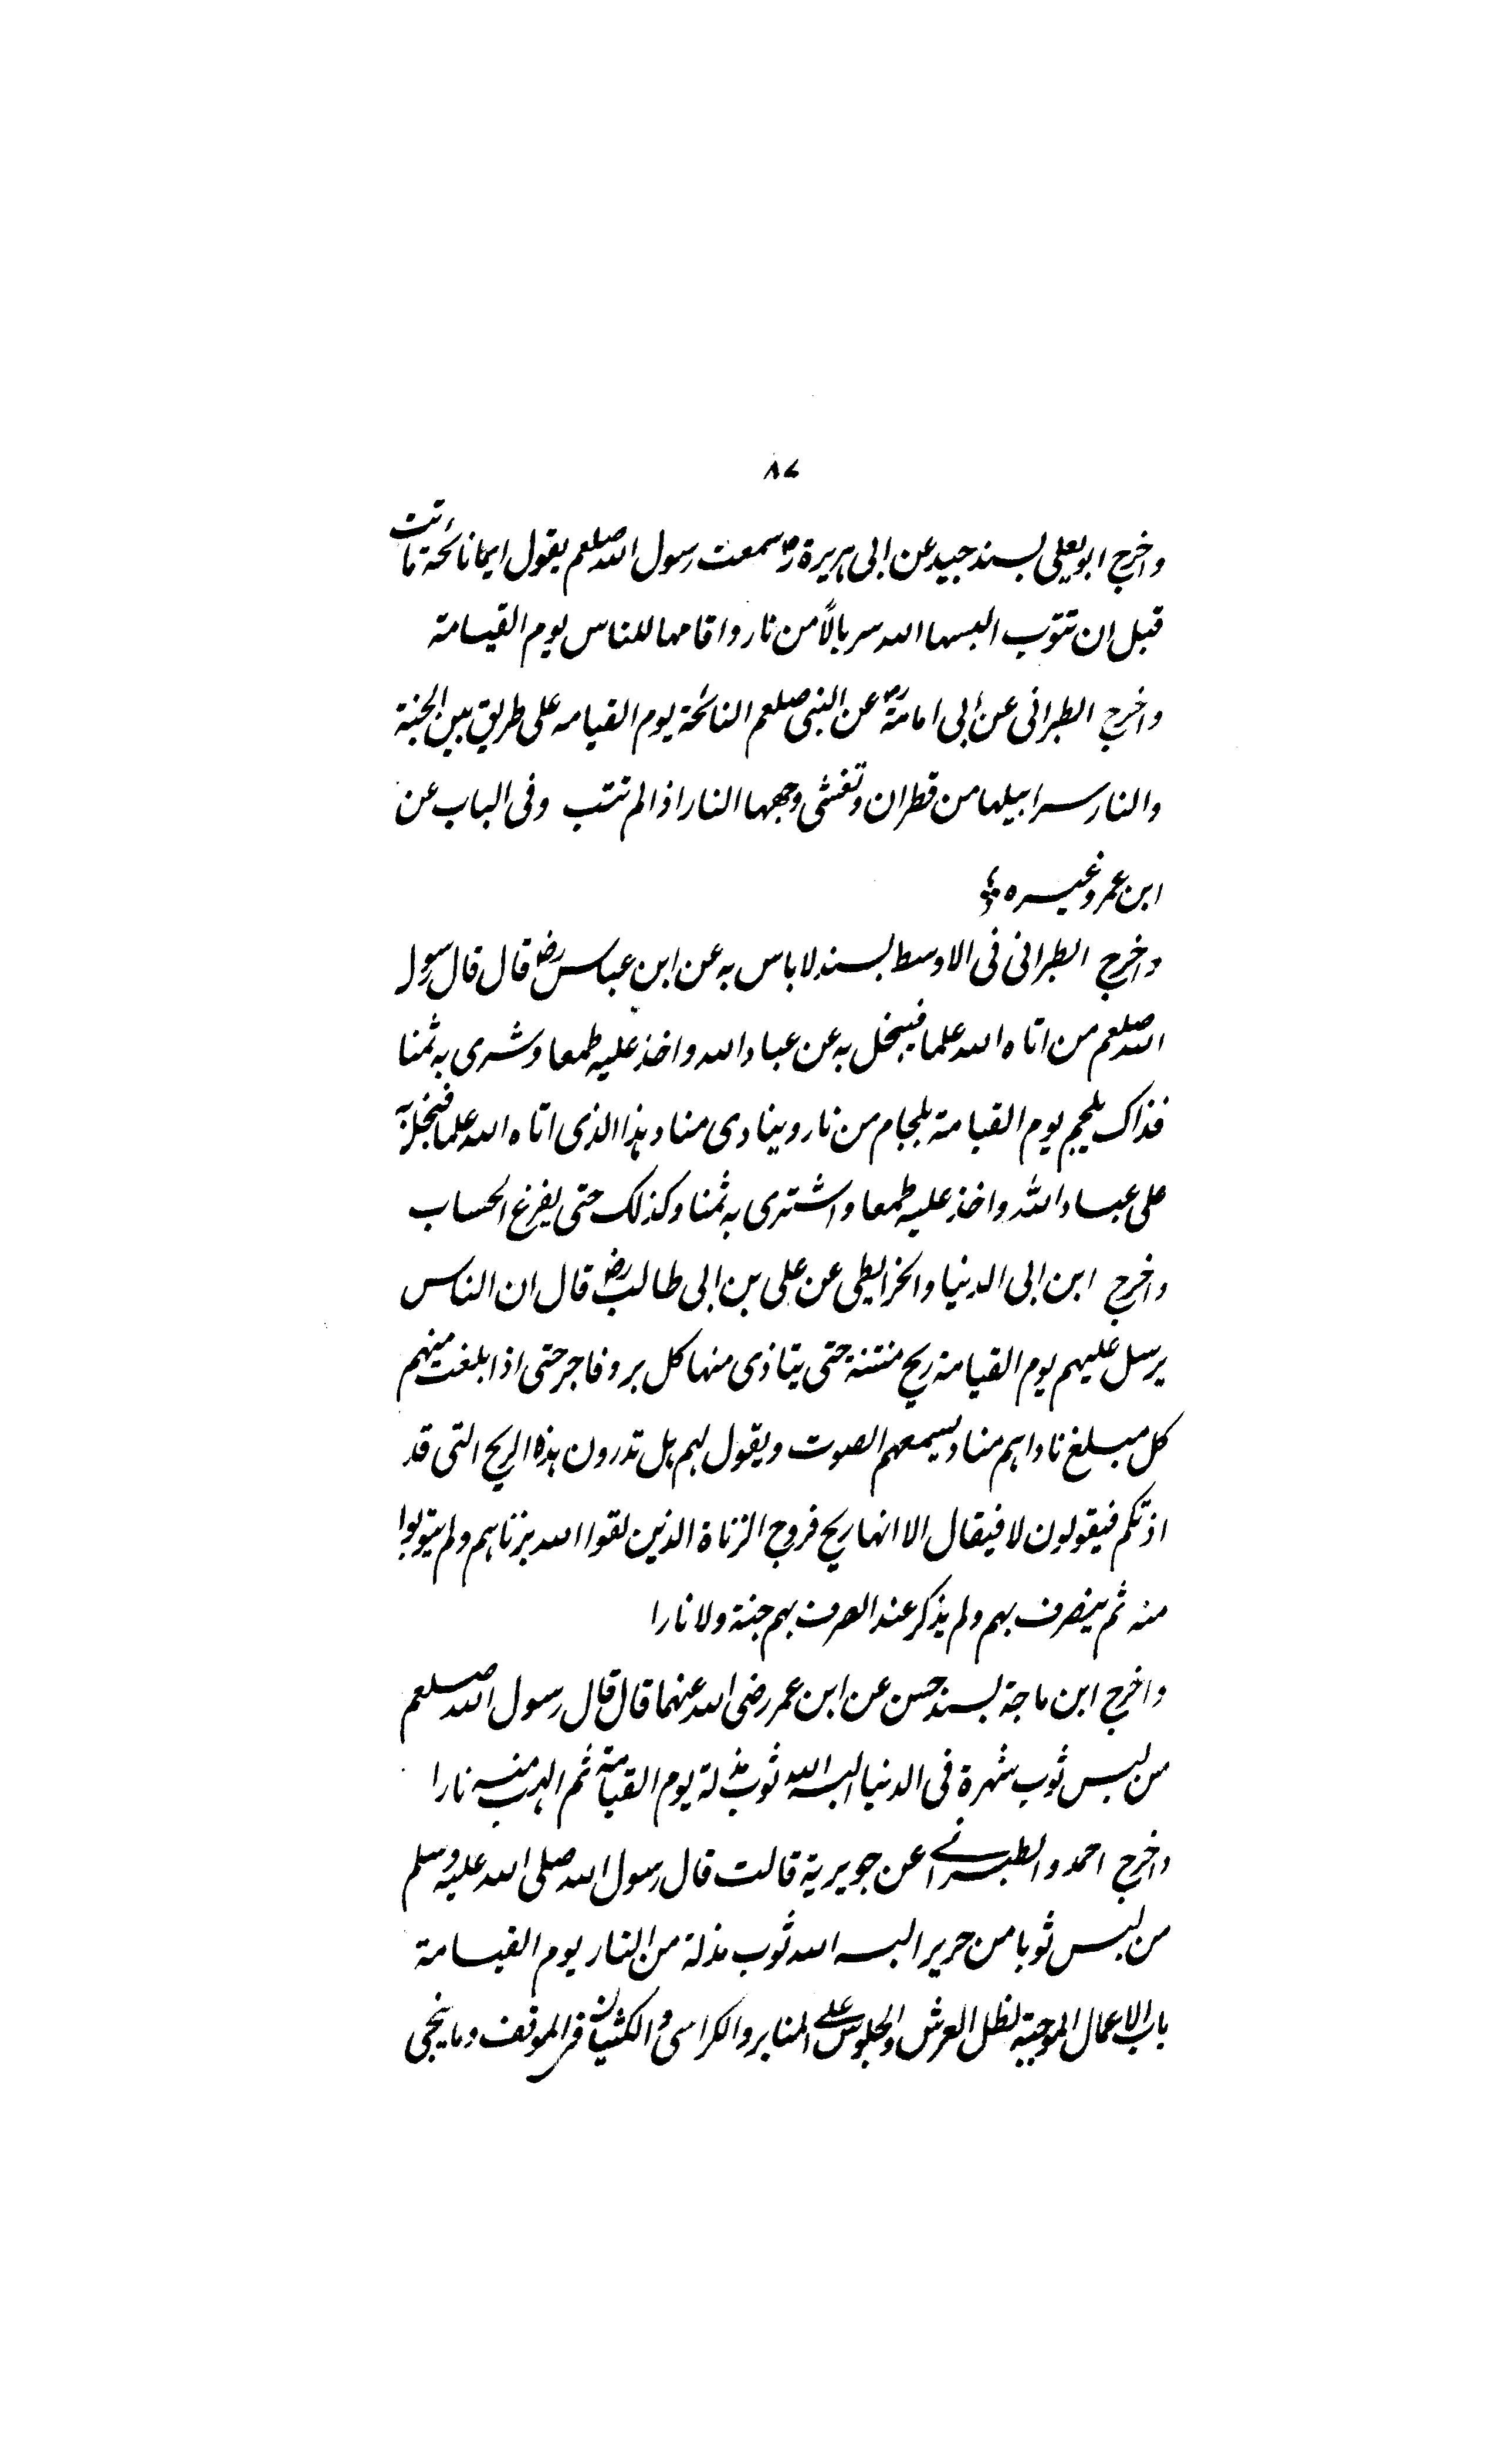 ۸۷
واخرج ابویعلی بسند جید عن ابی ہریرة رض سمعت رسول اللہ صلعم یقول ایما نائحة ماتت
قبل ان تتوب البسہا اللہ سربالاً من نار واقامہا للناس یوم القیامة
واخرج الطبرانی عن ابی امامة رض عن النبی صلعم النائحة یوم القیامہ علی طریق بین الجنة
والنار سرابیلہا من قطران وتغشی وجہہا النار اذا لم تتب وفی الباب عن
ابن عمر وغیرہ
واخرج الطبرانی فی الاوسط بسند لاباس بہ عن ابن عباس رض قال قال رسول
اللہ صلعم من اتاہ اللہ علما فبخل بہ عن عباد اللہ واخذ علیہ طمعا وشری بہ ثمنا
فذاک یلجم یوم القیامة بلجام من نار وینادی مناد ہذا الذی اتاہ اللہ علما فبخل بہ
علی عباد اللہ واخذ علیہ طمعا واشتری بہ ثمنا وکذلک حتی یفرغ الحساب
واخرج ابن ابی الدنیا والخرائطی عن علی بن ابی طالب رض قال ان الناس
یرسل علیہم یوم القیامة ریح منتنة حتی یتاذی منہا کل بر وفاجر حتی اذا بلغت منہم
کل مبلغ ناداہم مناد یسمعہم الصوت ویقول لہم ہل تدرون ہذہ الریح التی قد
اذتکم فیقولون لا فیقال الا انہا ریح فروج الزناة الذین لقوا اللہ بزناہم ولم یتوبوا
منہ ثم ینصرف بہم ولم یذکر عند الصرف بہم جنة ولا نارا
واخرج ابن ماجة بسند حسن عن ابن عمر رضی اللہ عنہما قال قال رسول اللہ صلعم
من لبس ثوب شہرة فی الدنیا البسہ اللہ ثوب مذلة یوم القیامة ثم الہب منہ نارا
واخرج احمد والطبرانے عن جویریة قالت قال رسول اللہ صلی اللہ علیہ وسلم
من لبس ثوبا من حریر البسہ اللہ ثوب مذلة من النار یوم القیامة
باب الاعمال الموجبة لظل العرش والجلوس علے المنابر والکراسی والکثبان فی الموقف وما ینجی